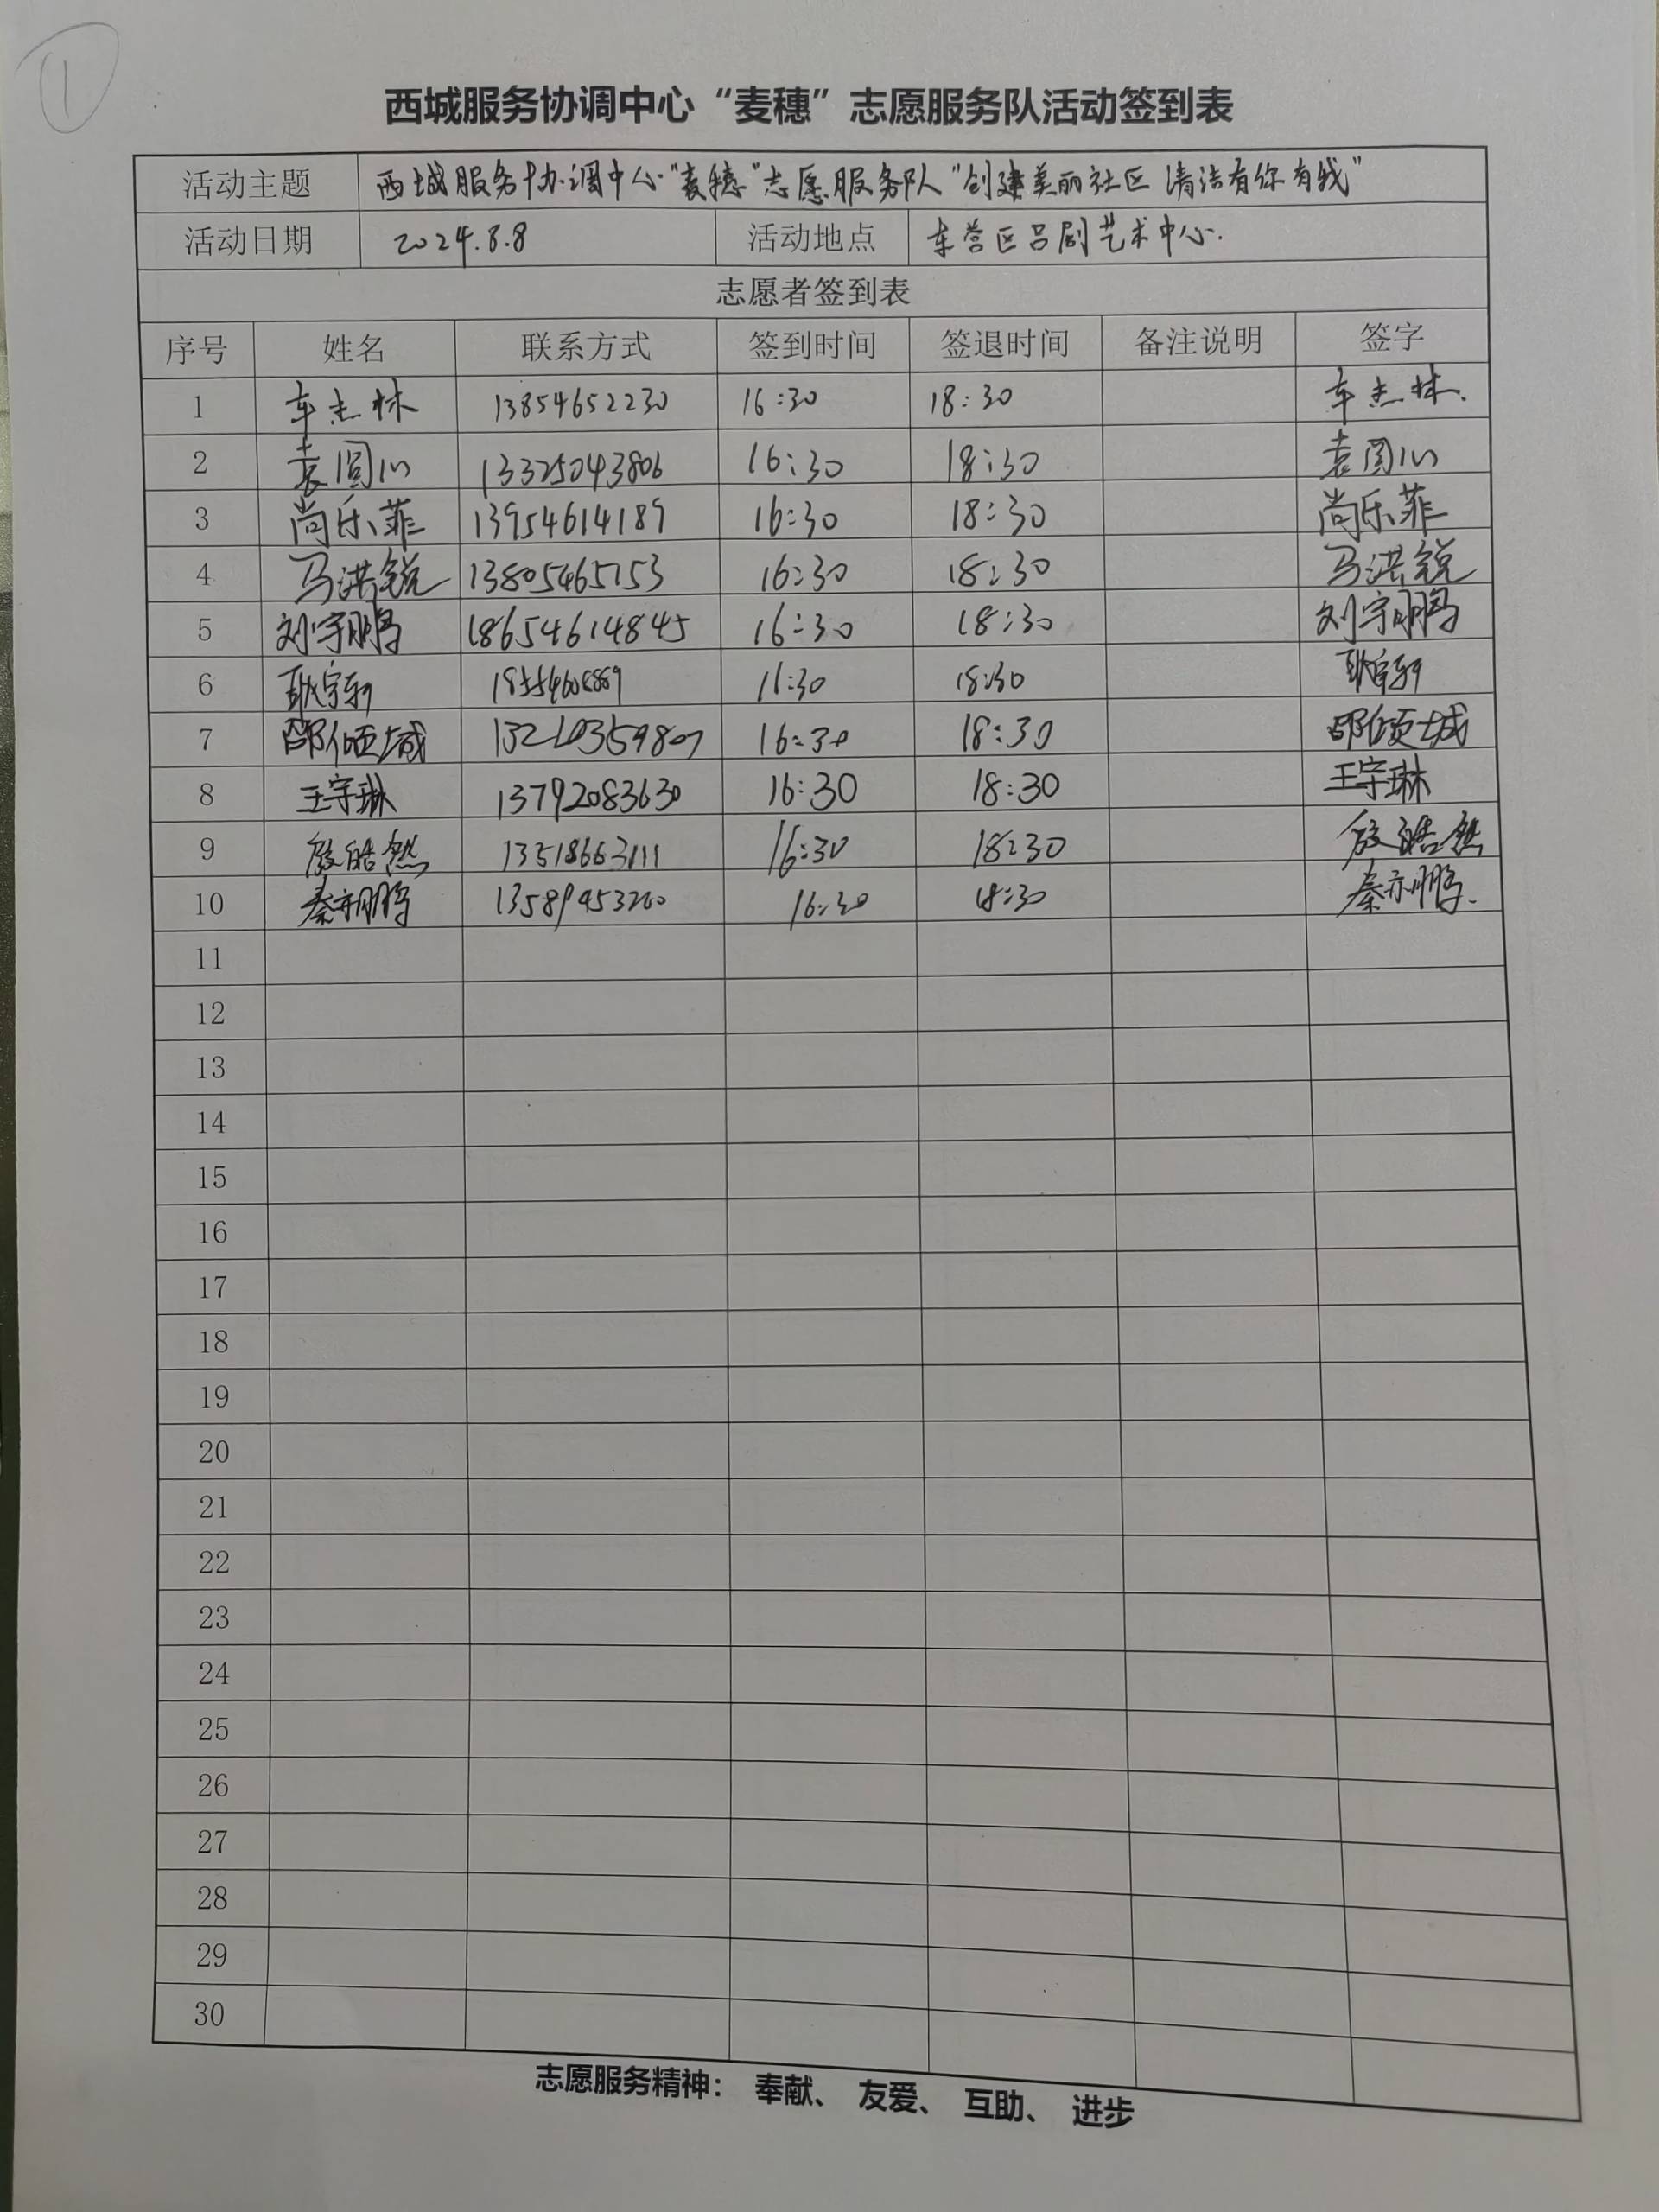 ①
西城服务协调中心“麦穗”志愿服务队活动签到表
活动主题 西城服务协调中心“麦穗”志愿服务队“创建美丽社区 清洁有你有我”
活动日期 2024.8.8 活动地点 东营区吕剧艺术中心.
志愿者签到表
序号 姓名 联系方式 签到时间 签退时间 备注说明 签字
1 车志林 13854652230 16:30 18:30 车志林.
2 袁圆心 13325043806 16:30 18:30 袁圆心
3 尚乐菲 13954614189 16:30 18:30 尚乐菲
4 马洪锐 13805465153 16:30 18:30 马洪锐
5 刘宇鹏 18654614845 16:30 18:30 刘宇鹏
6 耿宇轩 16:30 18:30 耿宇轩
7 邵倾城 13210359807 16:30 18:30 邵倾城
8 王宇琳 13792083630 16:30 18:30 王宇琳
9 皓然 13518663111 16:30 18:30 皓然
10 秦亦鹏 13589453200 16:30 18:30 秦亦鹏.
11
12
13
14
15
16
17
18
19
20
21
22
23
24
25
26
27
28
29
30
志愿服务精神： 奉献、 友爱、 互助、 进步